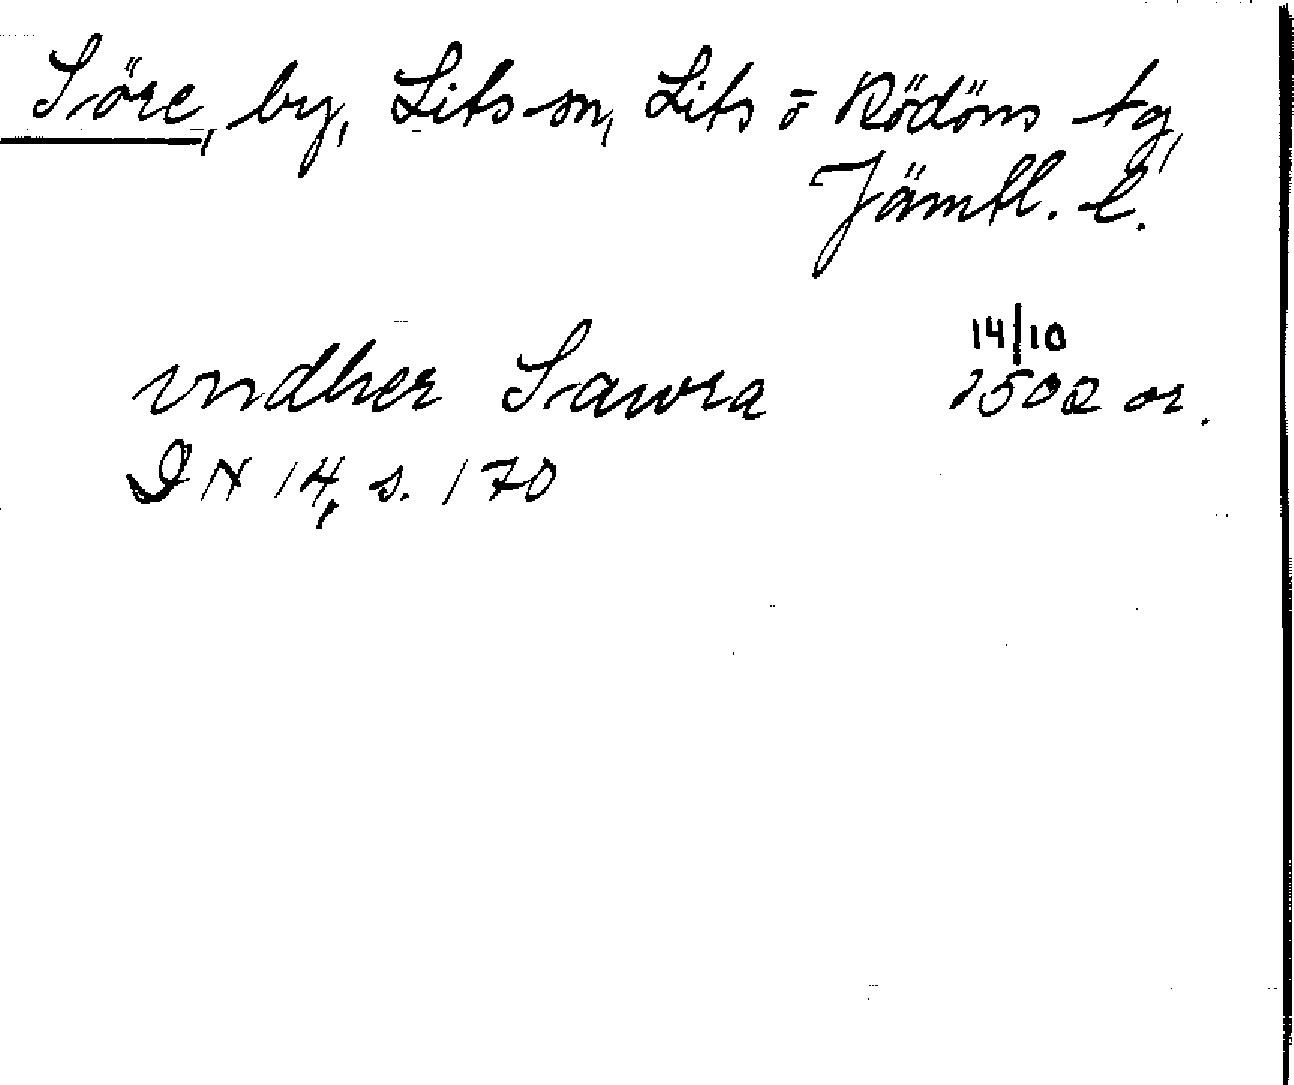 Söre, by, Lits sn, Lits o Rödöns tg,
Jämtl. l.
vndher Sawra 14/10 1502 or.
DN 14, s. 170